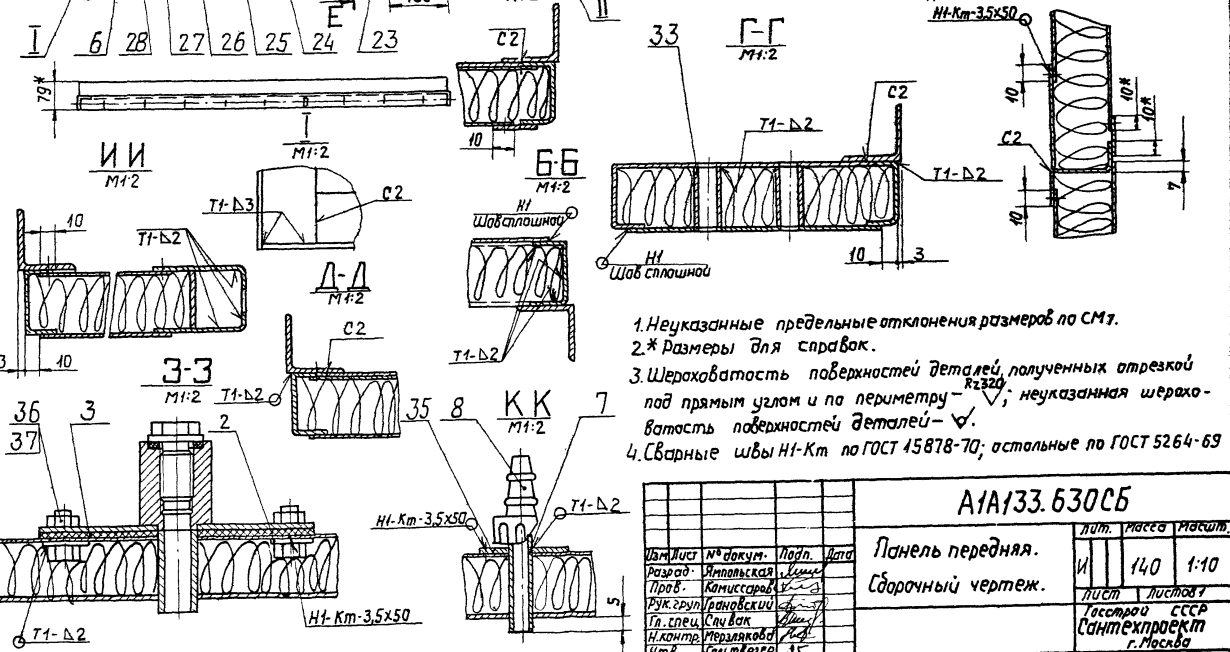 I 6 28 27 26 25 24 E 23 II
79*
С2
10
I
М1:2
И И
М1:2
Т1-Δ3
С2
10
Т1-Δ2
3
10
Д-Д
М1:2
С2
Т1-Δ2
Б-Б
М1:2
Н1
Шов сплошной
Т1-Δ2
33
Г-Г
М1:2
С2
Т1-Δ2
Т1-Δ2
Н1
Шов сплошной
10
3
Н1-Кт-3,5х50
10
10*
10*
С2
10
7
1. Неуказанные предельные отклонения размеров по СМ7.
2.* Размеры для справок.
3. Шероховатость поверхностей деталей, полученных отрезкой
под прямым углом и по периметру - Rz320; неуказанная шерохо-
ватость поверхностей деталей -
4. Сварные швы Н1-Кт по ГОСТ 15878-70; остальные по ГОСТ 5264-69
З-З
М1:2
36
37
3
2
Т1-Δ2
Н1-Кт-3,5х50
К К
М1:2
35
8
7
Н1-Кт-3,5х50
Т1-Δ2
5
А1А133.630СБ
Панель передняя.
Сборочный чертеж.
Лит. Масса Масшт.
И 140 1:10
Лист Листов 1
Госстрой СССР
Сантехпроект
г. Москва
Изм Лист № докум. Подп. Дата
Разраб. Ямпольская
Пров. Комиссаров
Рук. груп Грановский
Гл. спец. Спивак
Н.контр. Мерзлякова